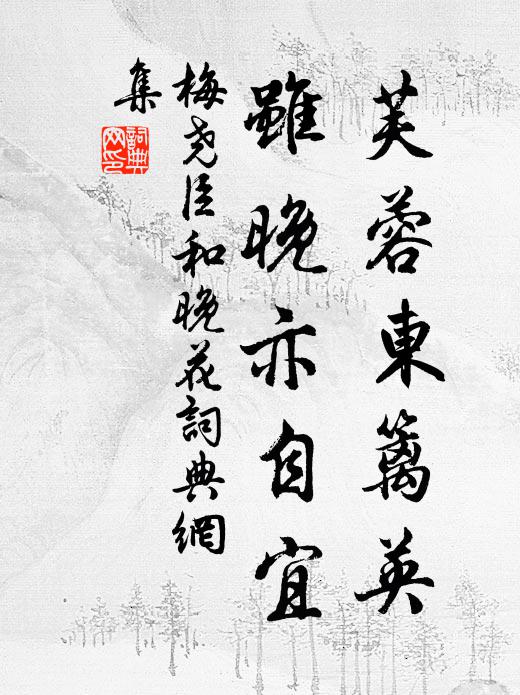 芙蓉東籬英
雖晚亦自宜
梅尧臣和晚花詞典網
集
詞典网印